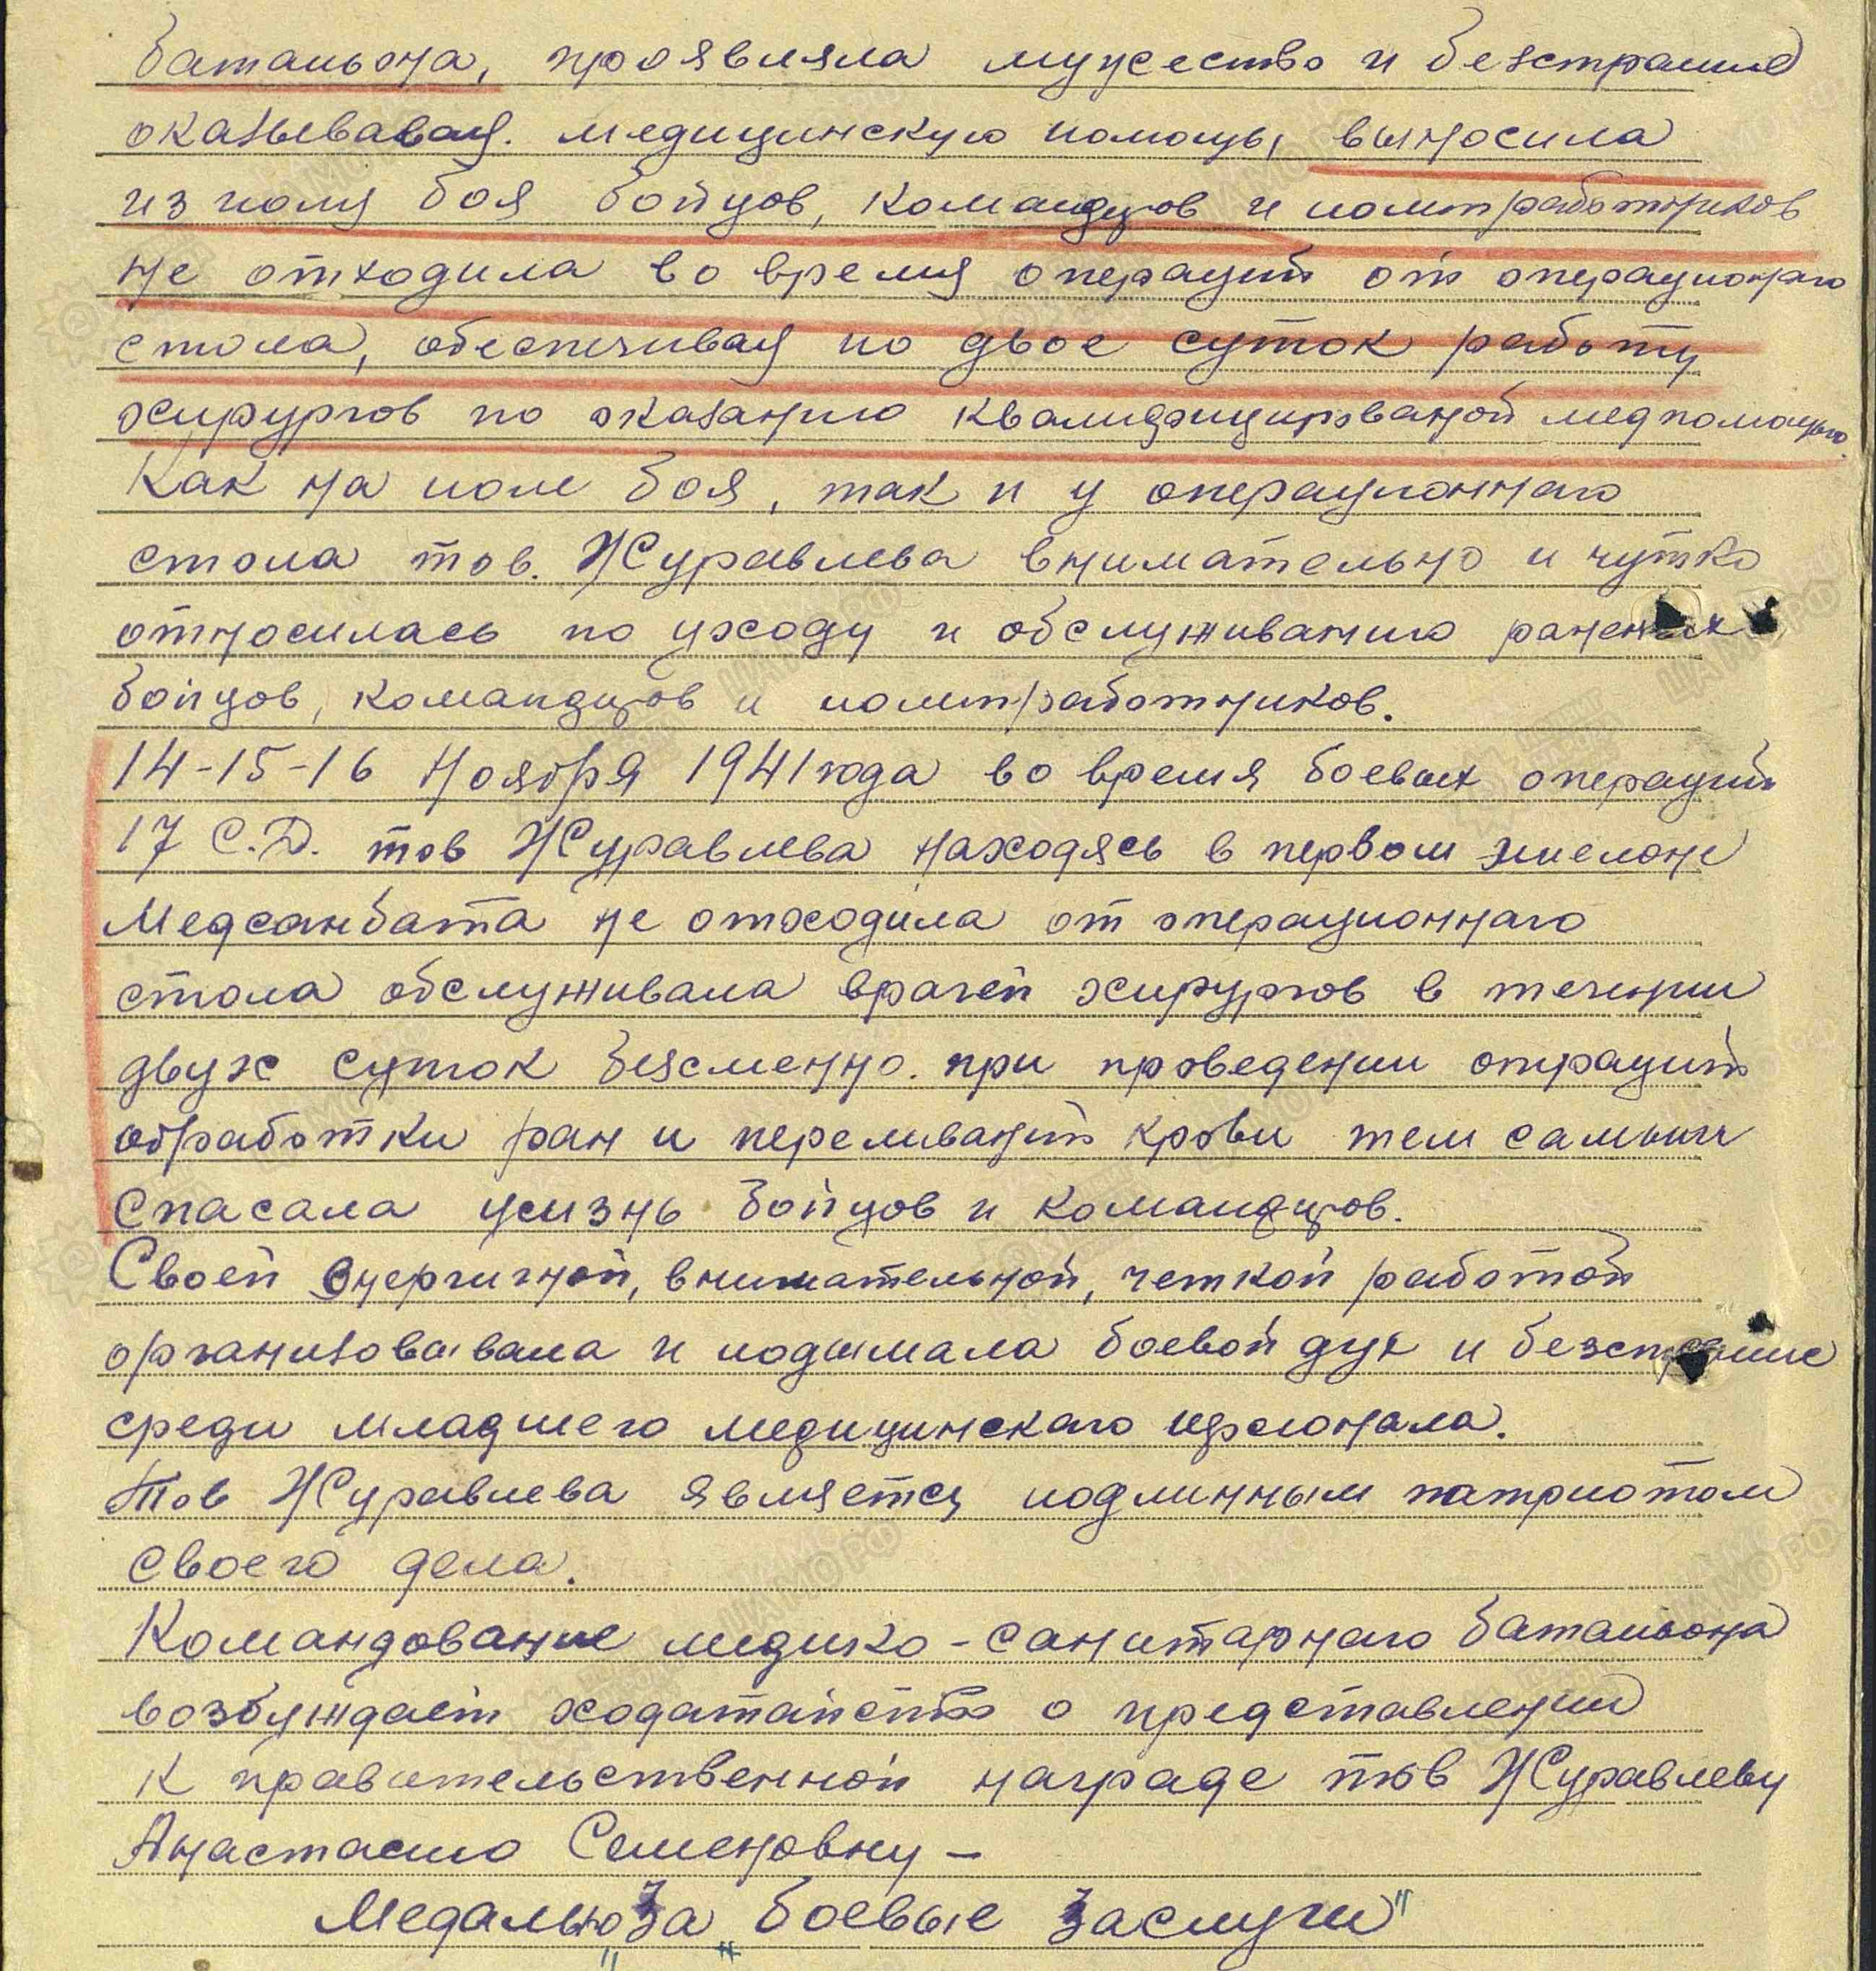 батальона, проявляла мужество и безстрашие
оказывавая. медицинскую помощь, выносила
из поля боя бойцов, командиров и политработников
не отходила во время операций от операционаго
стола, обеспечивая по двое суток работу
хирургов по оказанию квалифицированой медпомощью.
Как на поле боя, так и у операционнаго
стола тов. Журавлева внимательно и чутко
относилась по уходу и обслуживанию раненых
бойцов, командиров и политработников.
14-15-16 Ноября 1941 года во время боевых операций
17 С.Д. тов Журавлева находясь в первом эшелоне
Медсанбата не отходила от операционнаго
стола обслуживала врачей хирургов в течении
двух суток безсменно. при проведении операций
обработки ран и переливаний крови тем самым
спасала жизнь бойцов и командиров.
Своей энергичной, внимательной, четкой работой
организовывала и подымала боевой дух и безстрашие
среди младшего медицинскаго персонала.
Тов Журавлева является подлинным патриотом
своего дела.
Командование медико-санитарнаго батальона
возбуждает ходатайство о представлении
к правительственной награде тов Журавлеву
Анастасию Семеновну —
Медалью "За боевые заслуги"